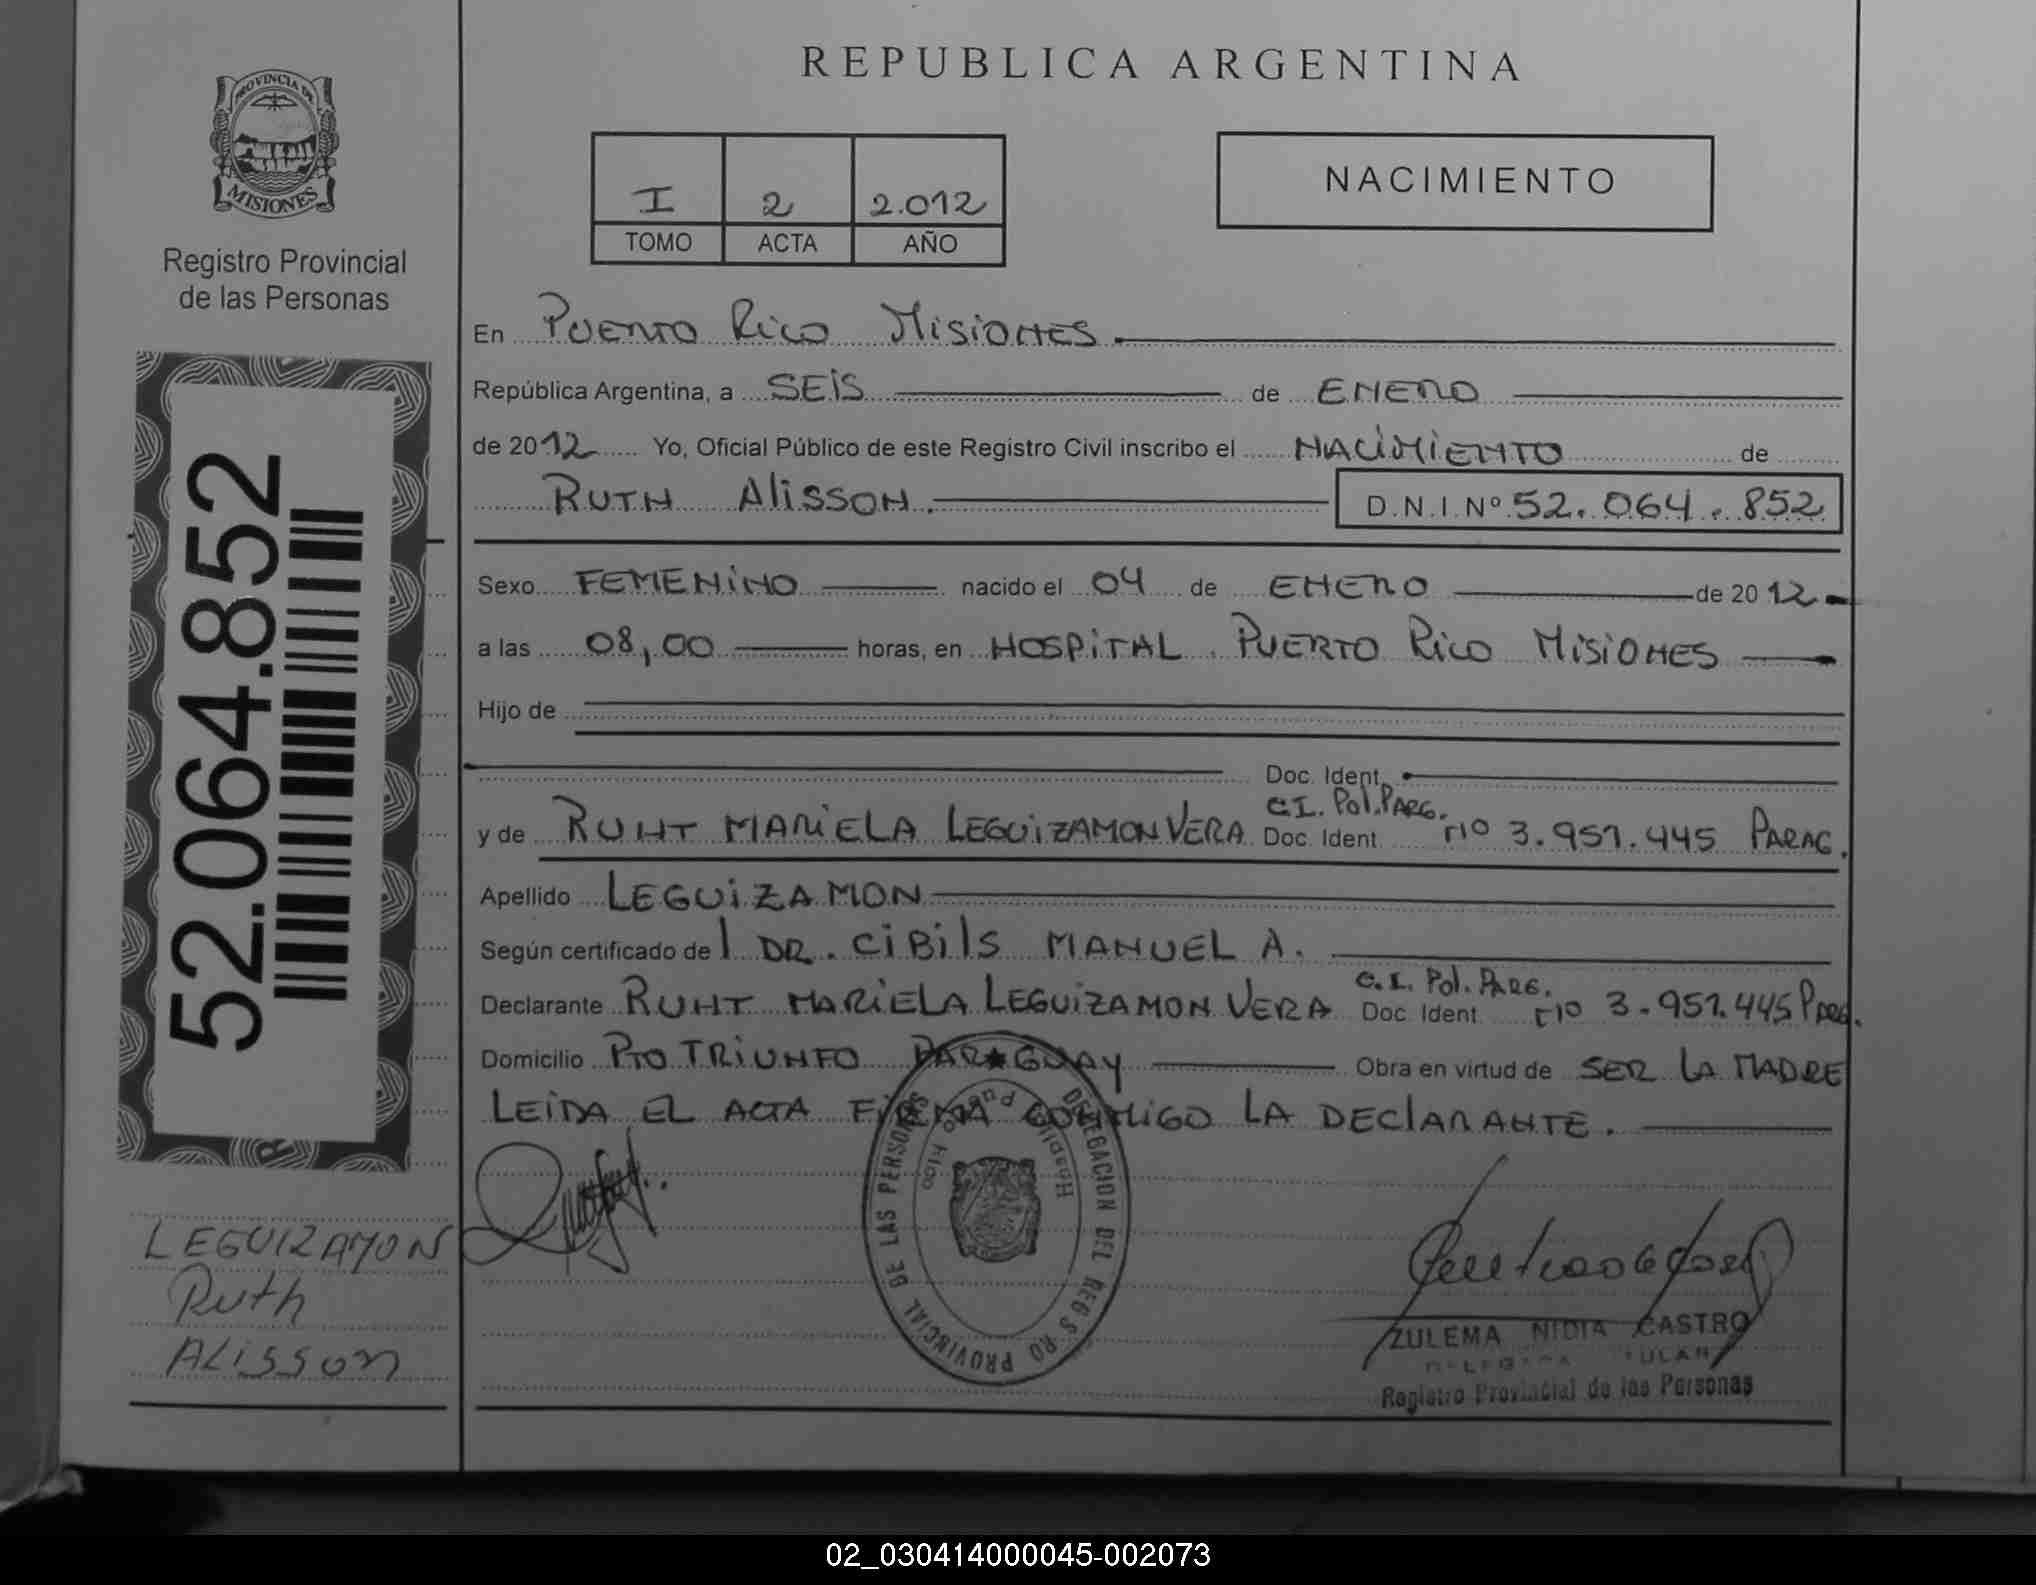 REPUBLICA ARGENTINA
PROVINCIA DE
MISIONES
Registro Provincial
de las Personas
I 2 2.012
TOMO ACTA AÑO
NACIMIENTO
En Puerto Rico Misiones
República Argentina, a SEIS de ENERO
de 2012 Yo, Oficial Público de este Registro Civil inscribo el NACIMIENTO de
RUTH Alisson. D.N.I.Nº 52.064.852
Sexo FEMENINO nacido el 04 de ENERO de 2012
a las 08,00 horas, en HOSPITAL. PUERTO Rico MISIONES
Hijo de
Doc. Ident.
C.I. Pol. PARG.
y de RUHT MARIELA LEGUIZAMON VERA Doc. Ident. Nº 3.951.445 PARAG.
Apellido LEGUIZAMON
Según certificado de l DR. CIBILS MANUEL A.
C.I. Pol. PARG.
Declarante RUHT MARIELA LEGUIZAMON VERA Doc. Ident. Nº 3.951.445 PARG.
Domicilio PTO TRIUNFO PARAGUAY Obra en virtud de SER LA MADRE
LEIDA EL ACTA FIRMA CONMIGO LA DECLARANTE.
52.064.852
LEGUIZAMON
Ruth
ALISSON
DELEGACION DEL REGISTRO PROVINCIAL DE LAS PERSONAS
Hospital Puerto Rico
ZULEMA NIDIA CASTRO
Registro Provincial de las Personas
02_030414000045-002073